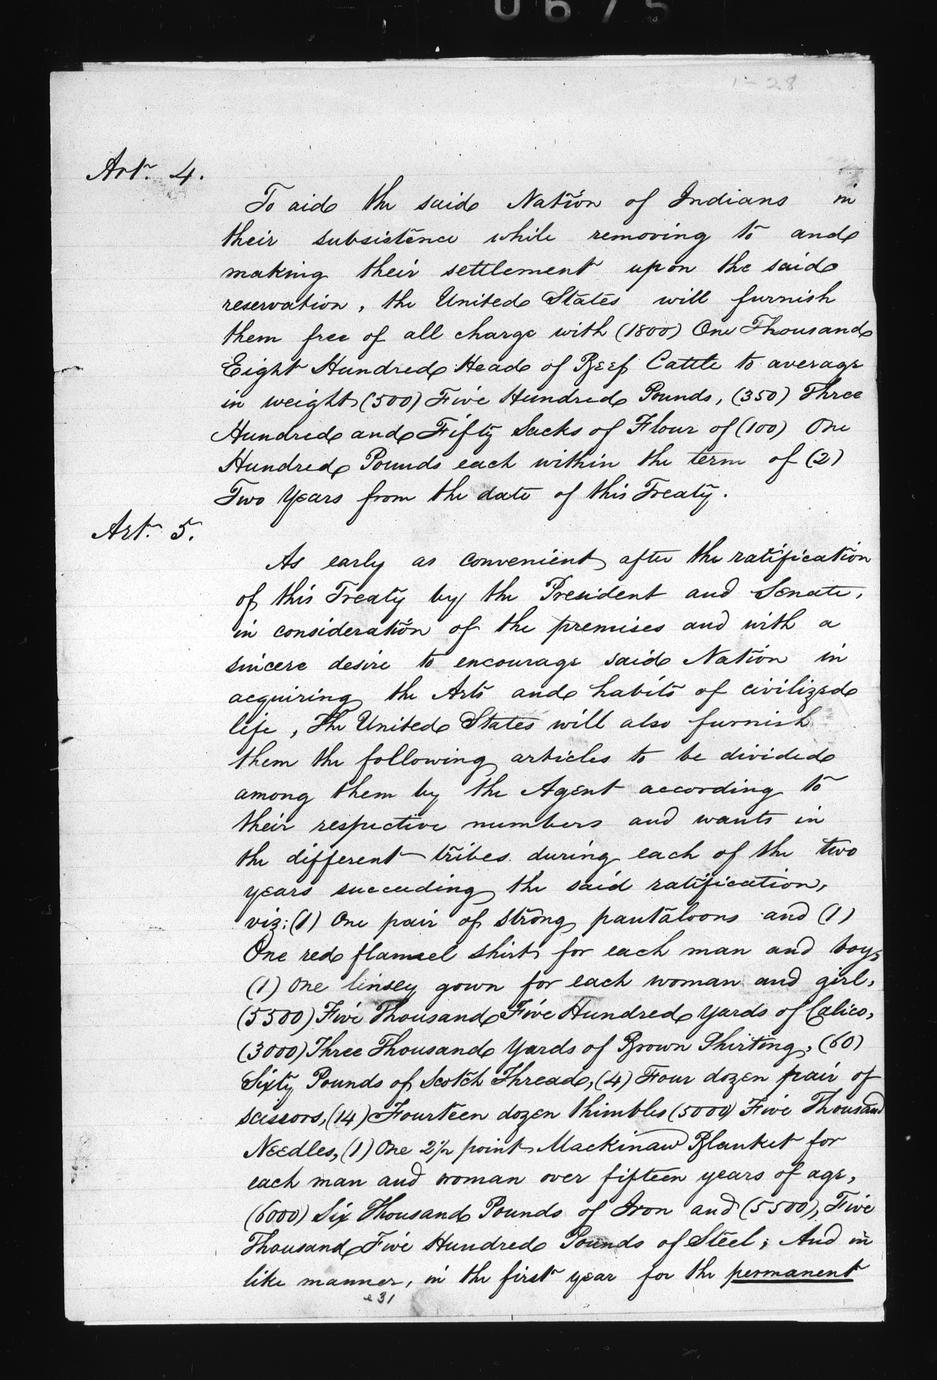 0675
1-28
Art. 4.
To aid the said Nation of Indians in
their subsistence while removing to and
making their settlement upon the said
reservation, the United States will furnish
them free of all charge with (1800) One Thousand
Eight Hundred Head of Beef Cattle to average
in weight (500) Five Hundred Pounds, (350) Three
Hundred and Fifty Sacks of Flour of (100) One
Hundred Pounds each within the term of (2)
Two Years from the date of this Treaty.
Art. 5.
As early as convenient after the ratification
of this Treaty by the President and Senate,
in consideration of the premises and with a
sincere desire to encourage said Nation in
acquiring the Arts and habits of civilized
life, The United States will also furnish
them the following articles to be divided
among them by the Agent according to
their respective numbers and wants in
the different tribes during each of the two
years succeeding the said ratification,
viz: (1) One pair of strong pantaloons and (1)
One red flannel shirt for each man and boy,
(1) One linsey gown for each woman and girl,
(5500) Five Thousand Five Hundred yards of Calico,
(3000) Three Thousand Yards of Brown Shirting, (60)
Sixty Pounds of Scotch Thread, (4) Four dozen pair of
scissors, (14) Fourteen dozen thimbles (5000) Five Thousand
Needles, (1) One 2½ point Mackinaw Blanket for
each man and woman over fifteen years of age,
(6000) Six Thousand Pounds of Iron and (5500), Five
Thousand Five Hundred Pounds of Steel; And in
like manner, in the first year for the permanent
31